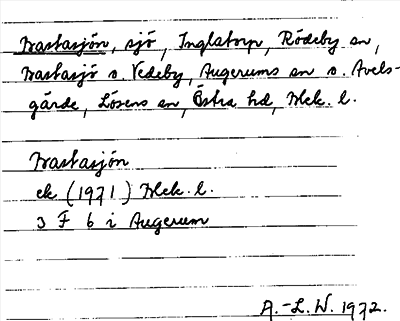 Wastasjön, sjö, Inglatorp, Rödeby sn,
Wastasjö o. Vedeby, Augerums sn o. Avels-
gärde, Lösens sn, Östra hd, Blek. l.
Wastasjön
ek (1971) Blek. l.
3 F 6 i Augerum
A.-L. W. 1972.